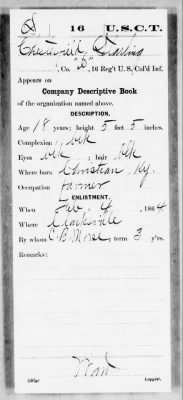 16 U.S.C.T.
Charles
, Co. "B", 16 Reg't U. S. Col'd Inf.
Appears on
Company Descriptive Book
of the organization named above.
DESCRIPTION.
Age 18 years; height 5 feet 5 inches.
Complexion blk
Eyes blk; hair blk
Where born Christian, Ky.
Occupation farmer
ENLISTMENT.
When Feb. 4, 1864
Where Clarksville
By whom C. B. Morse; term 3 y'rs.
Remarks:
Copyist.